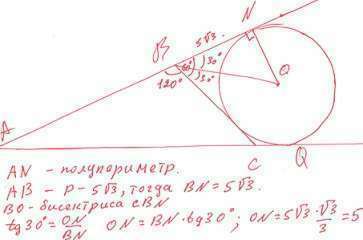 N
5√3
B
60°
30°
30°
120°
O
A
C
Q
AN - полупориметр.
AB - P - 5√3, тогда BN = 5√3.
BO - бисектриса CBN
tg30° = ON/BN ON = BN · tg30°; ON = 5√3 · √3/3 = 5